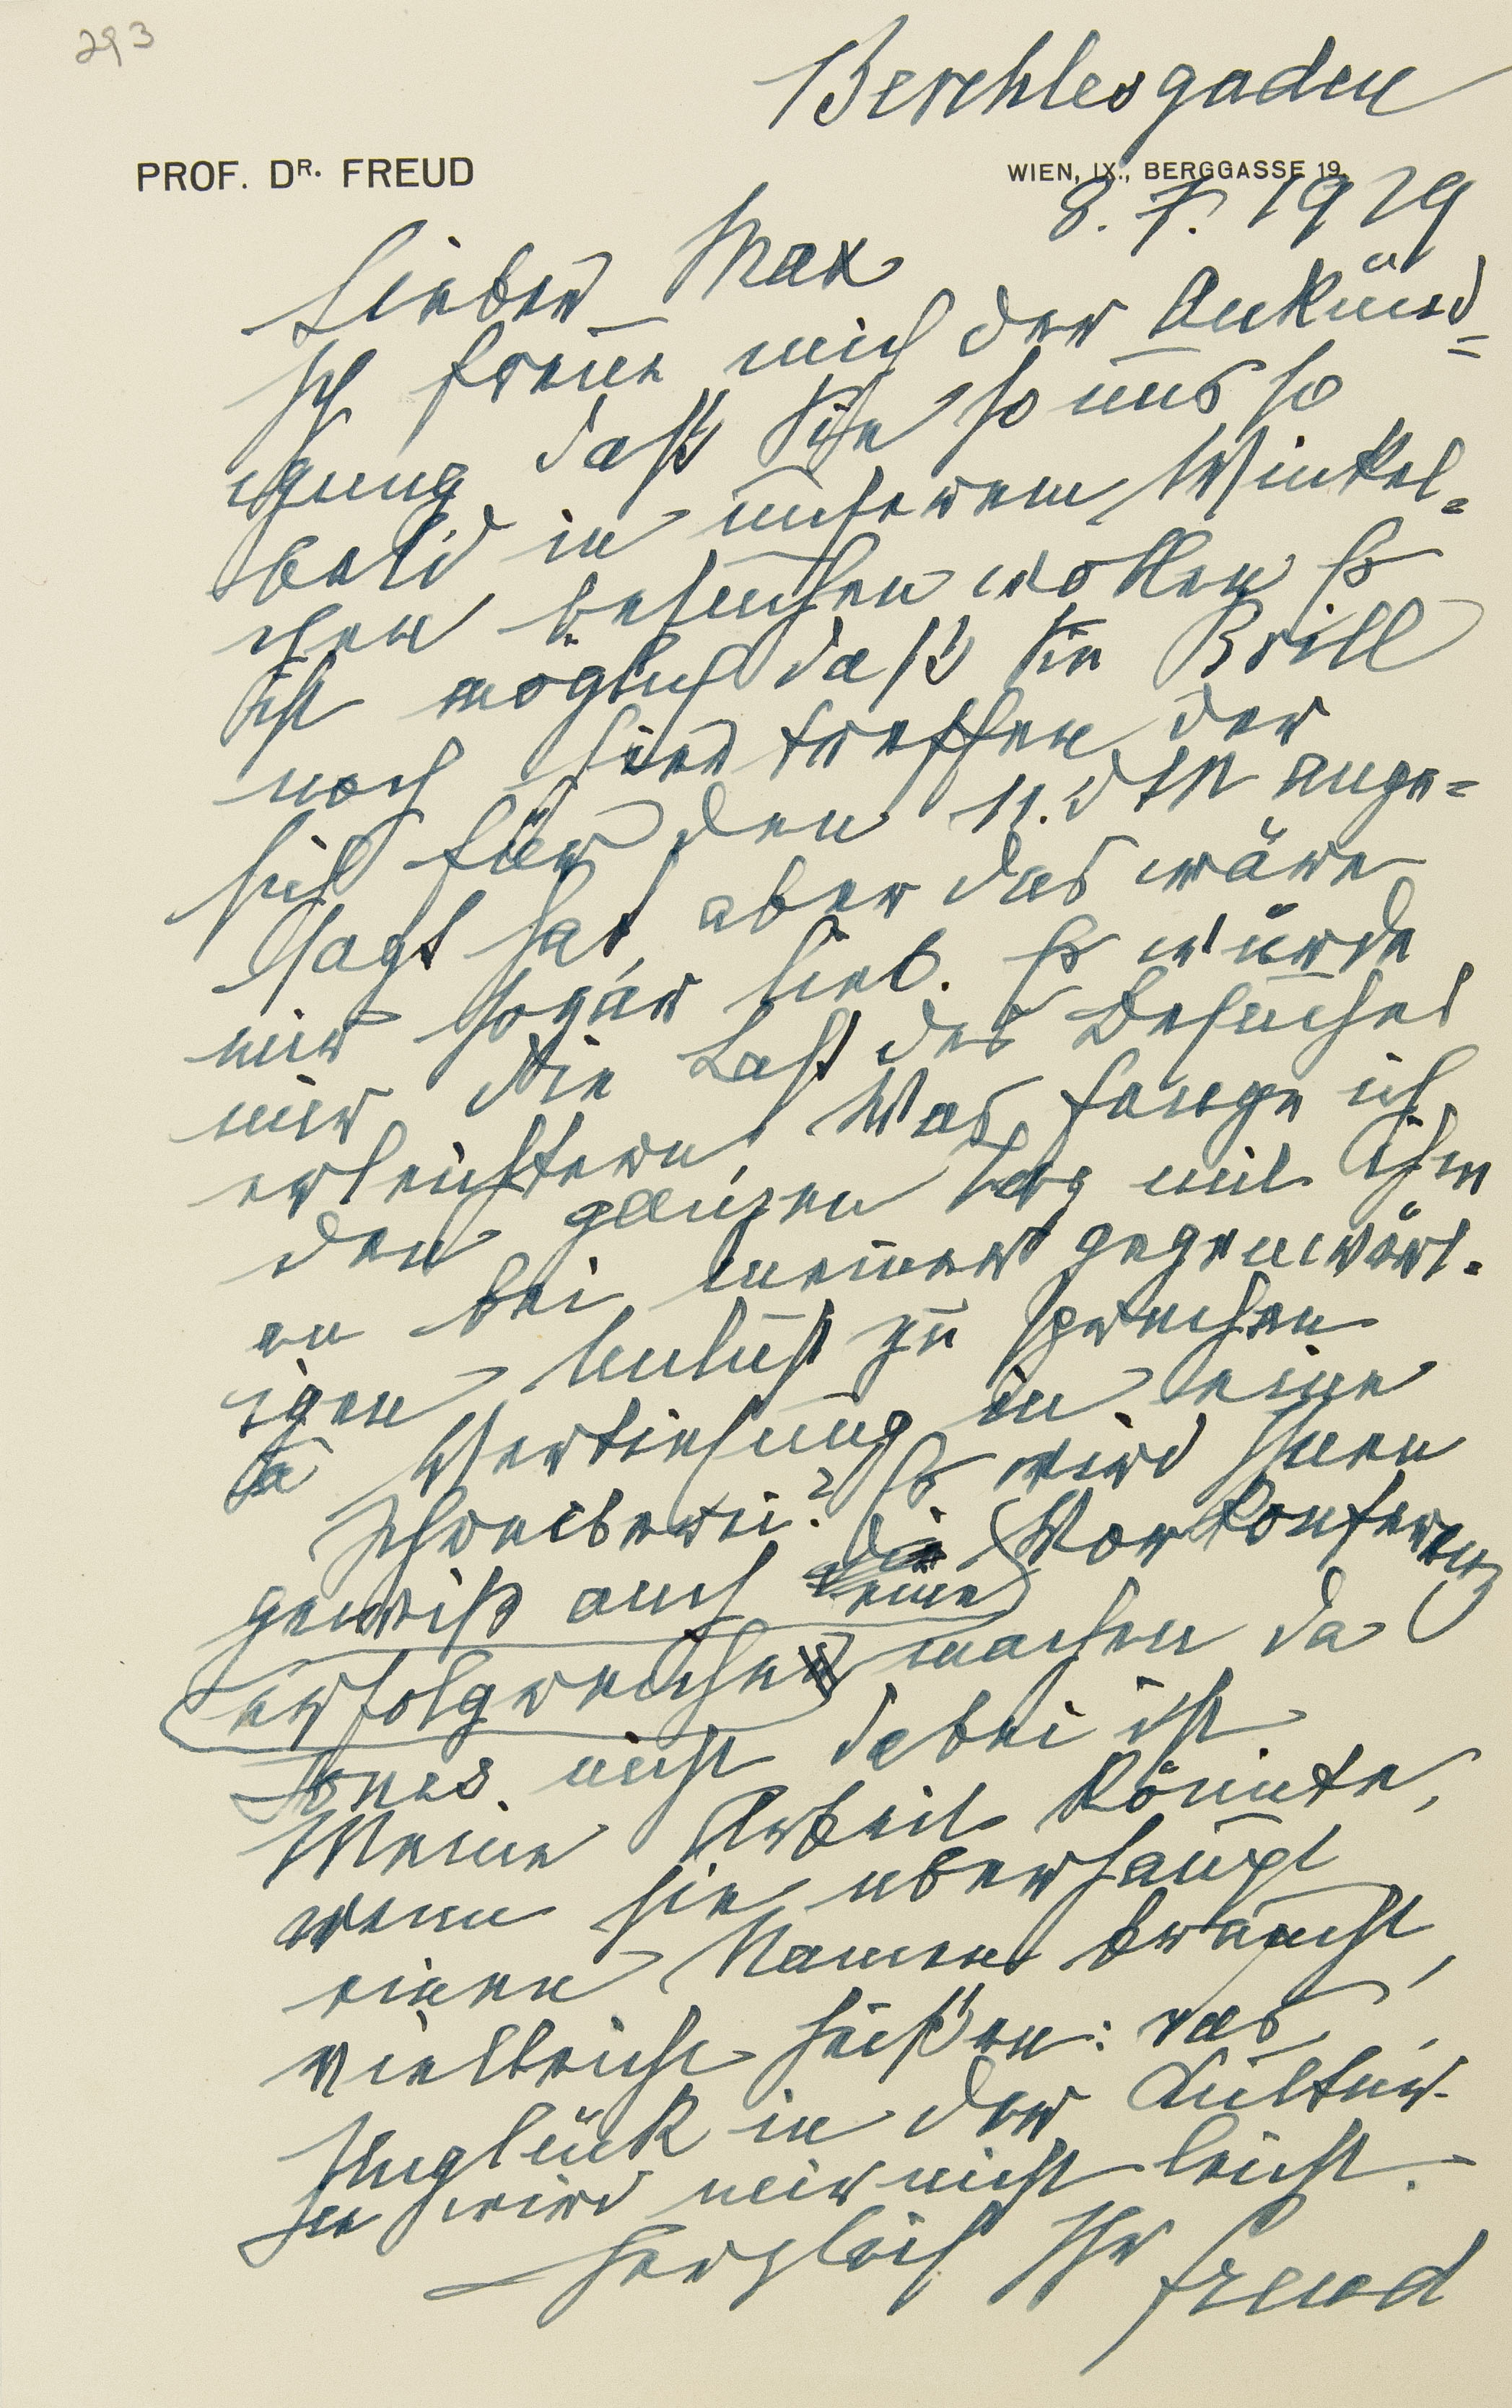 293
Berchtesgaden
PROF. DR. FREUD
WIEN, IX., BERGGASSE 19.
8. 7. 1929
Lieber Max
Ich freue mich der Ankünd=
igung daß Sie so uns so
bald in unserem Winkel=
chen besuchen wollen Es
ist möglich daß Sie Brill
noch hier treffen der
sich für den 11. d M ange=
sagt hat, aber das wäre
mir sogar lieb. Es würde
mir die Last des Besuches
erleichtern. Was fange ich
den ganzen Tag mit ihm
an bei meiner gegenwärt=
igen Unlust zu sprechen
u Vertiefung in eine
Schreiberei? Es wird Ihnen
gewiß auch die Vorkonferenz
eine
erfolgreiche machen da
Jones nicht dabei ist
Meine Arbeit könnte,
wenn sie überhaupt
einen Namen braucht,
vielleicht heißen: das
Unglück in der Kultur.
Sie wird mir nicht leicht.
Herzlich Ihr
Freud